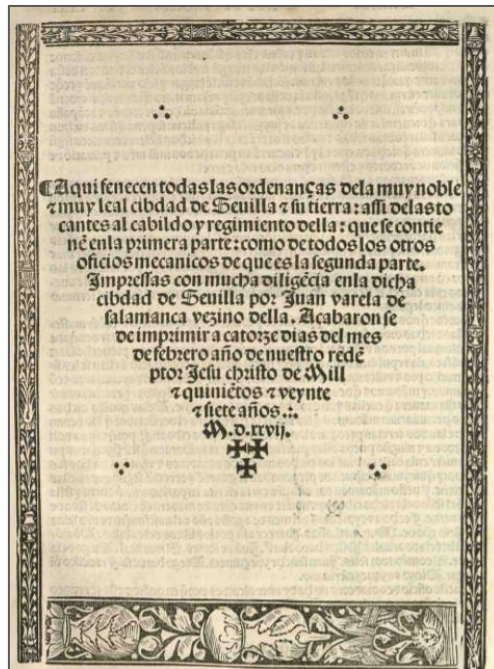 ¶Aqui fenecen todas las ordenanças dela muy noble
⁊ muy leal cibdad de Seuilla ⁊ su tierra: assi delas to
cantes al cabildo y regimiento della: que se contie
nē enla primera parte: como de todos los otros
oficios mecanicos de que es la segunda parte.
Impressas con mucha diligēcia enla dicha
cibdad de Seuilla por Juan varela de
salamanca vezino della. Acabaron se
de imprimir a catorze dias del mes
de febrero año de nuestro redē
ptor Jesu christo de Mill
⁊ quiniētos ⁊ veynte
⁊ siete años.:.
M.d.xxvij.